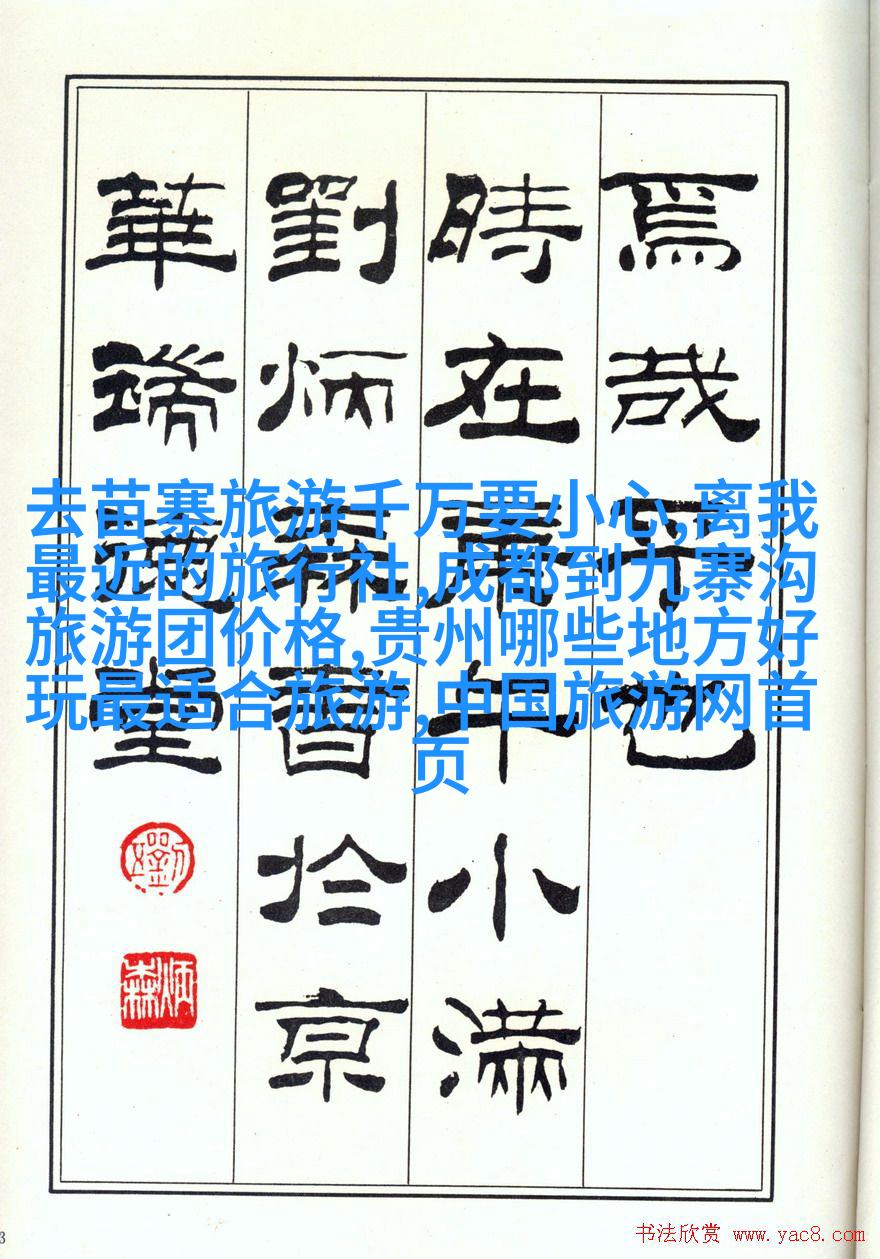 焉哉乎也
時在庚午小滿
劉炳森書於京
華堂
炳森
去苗寨旅游千万要小心,离我
最近的旅行社,成都到九寨沟
旅游团价格,贵州哪些地方好
玩最适合旅游,中国旅游网首
页
书法欣赏 www.yac8.com
3